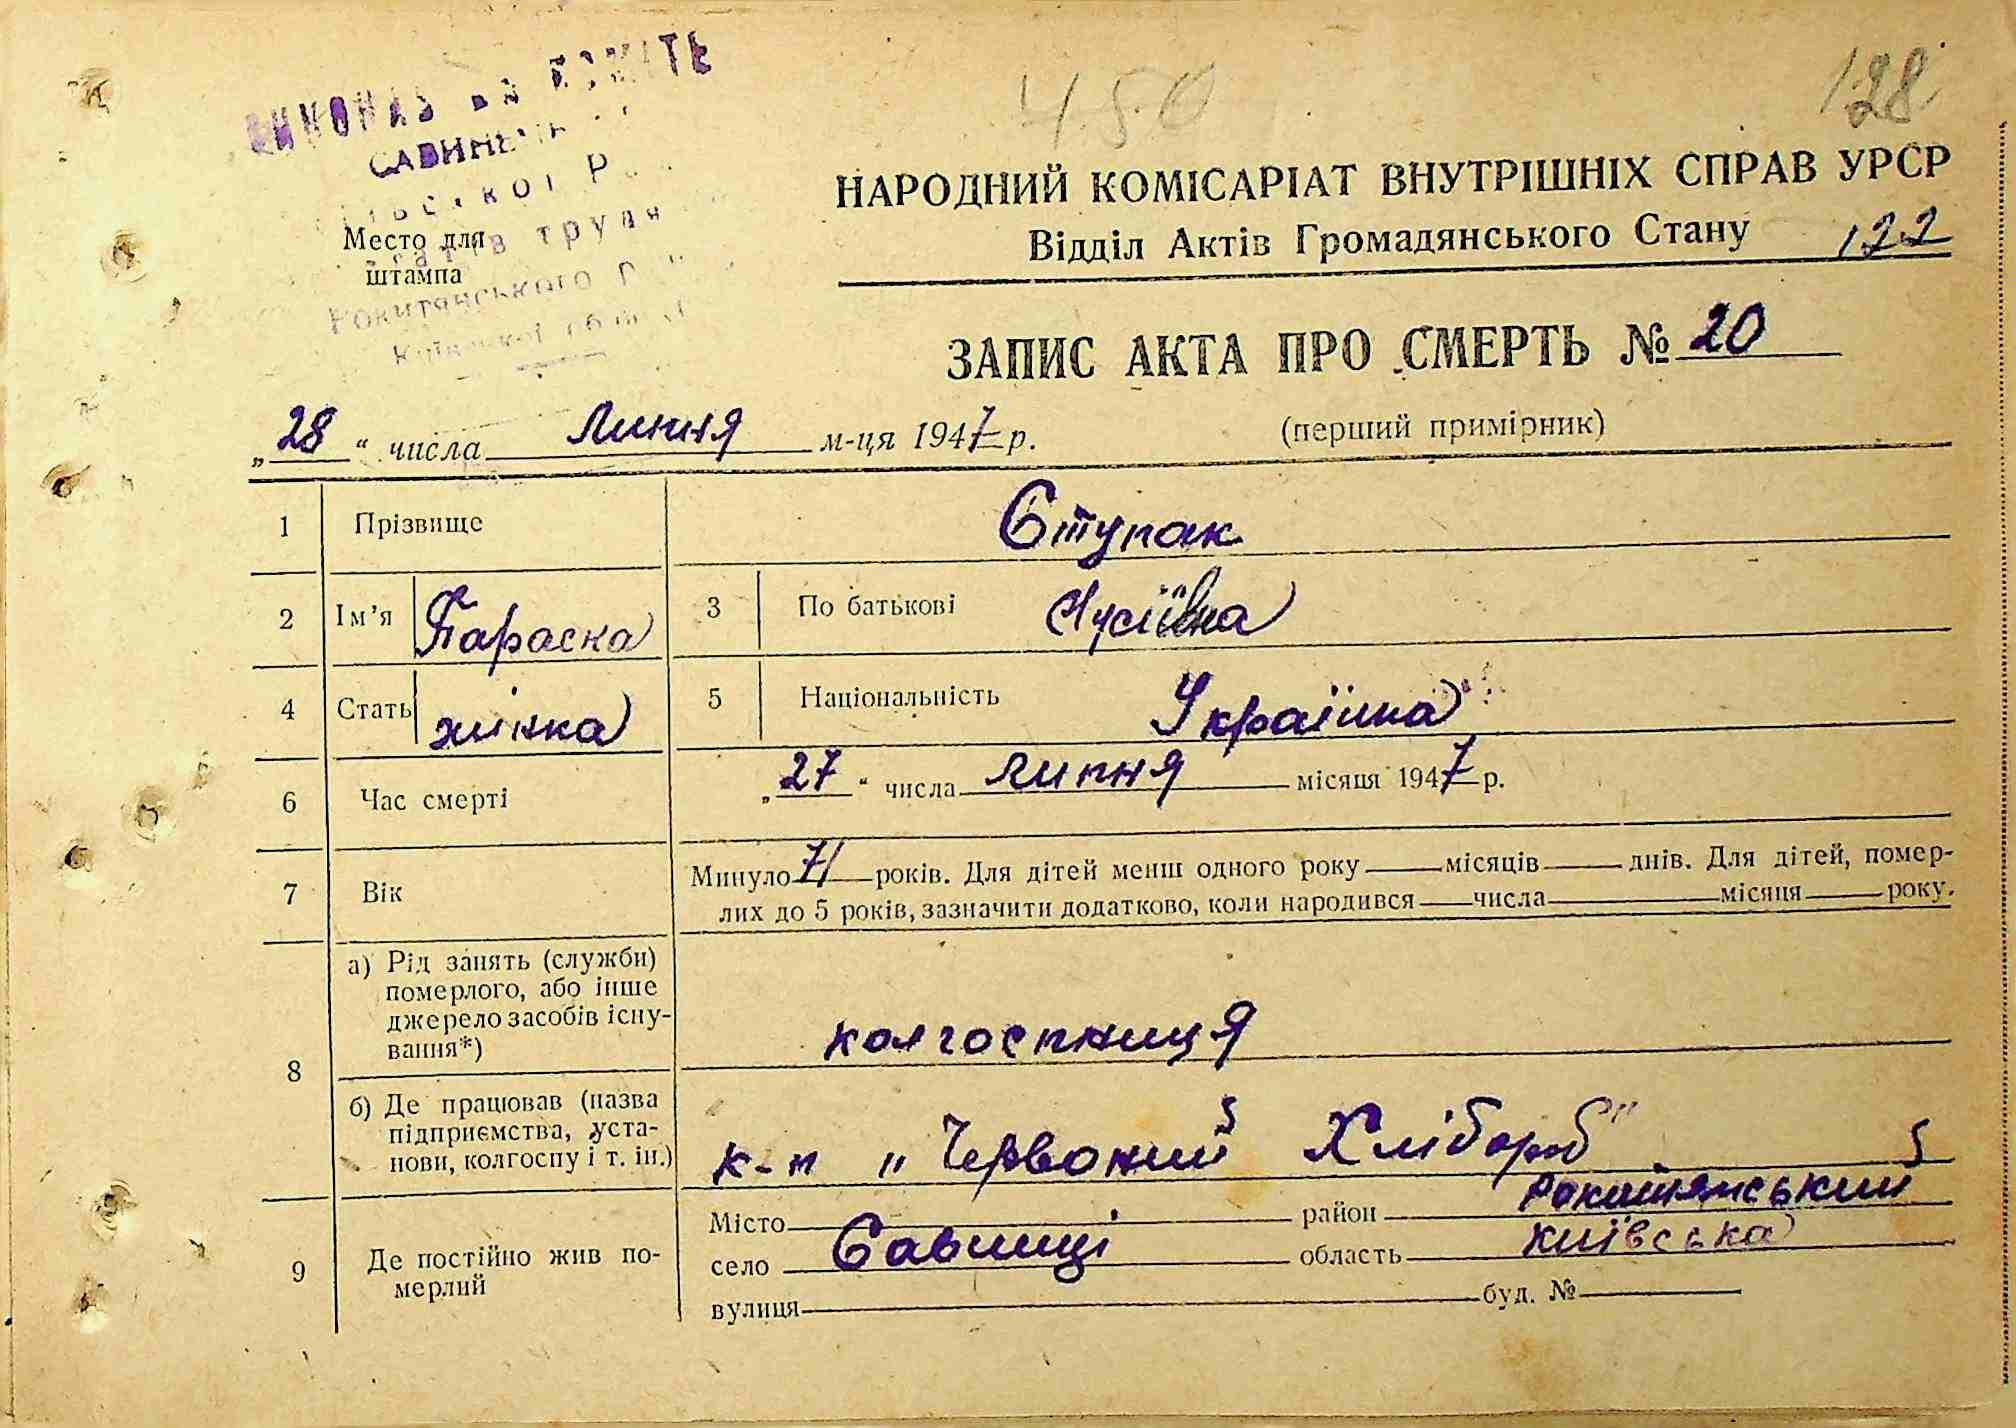 САВИНЕ
450
128
НАРОДНИЙ КОМІСАРІАТ ВНУТРІШНІХ СПРАВ УРСР
Відділ Актів Громадянського Стану 122
Место для
штампа
ЗАПИС АКТА ПРО СМЕРТЬ № 20
„28“ числа Липня м-ця 1947 р. (перший примірник)
1 Прізвище Ступак
2 Ім’я Параска 3 По батькові
4 Стать жінка 5 Національність Українка
6 Час смерті „27“ числа липня місяця 1947 р.
7 Вік Минуло 71 років. Для дітей менш одного року місяців днів. Для дітей, помер-
лих до 5 років, зазначити додатково, коли народився числа місяця року.
8 а) Рід занять (служби)
померлого, або інше
джерело засобів існу-
вання*) колгоспниця
б) Де працював (назва
підприємства, уста-
нови, колгоспу і т. ін.) к-п „Червоний Хлібороб"
9 Де постійно жив по-
мерлий
Місто район Рокитянський
село Савинці область Київська
вулиця буд. №